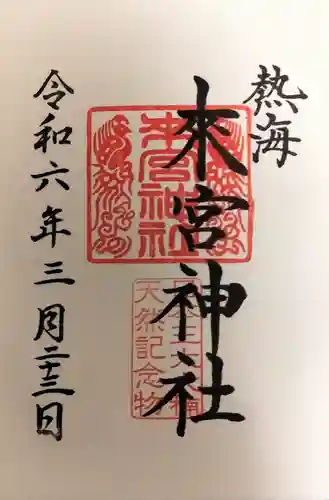 熱海
來宮神社
來宮神社
天然記念物
令和六年三月二十三日